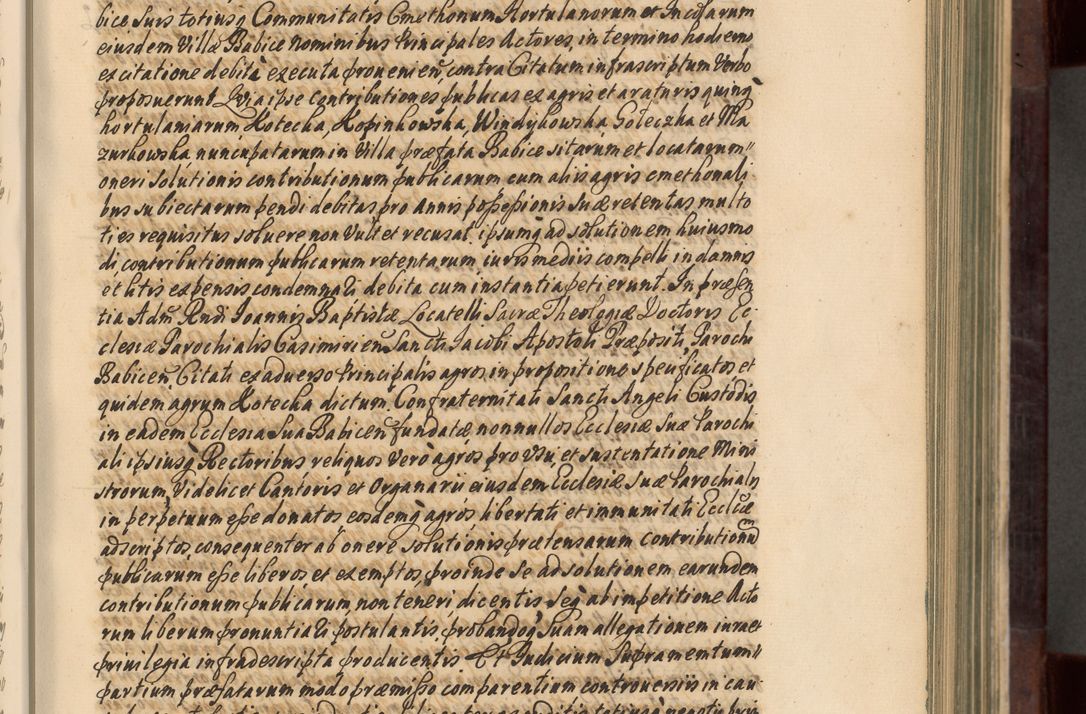 bice suis totiusq Communitatis Cmethonum Hortulanorum et Incolarum
eiusdem Villæ Babice nominibus Principales Actores, in termino hodierno
ex citatione debitè executa provenien, contra Citatum infrascriptum verbo
proposuerunt Quia ipse contributiones publicas ex agris et araturis quinq
hortulaniarum Kotecka, Kopinkowska, Windykowska, Goleczka et Ma
zurkowska nuncupatarum in Villa præfata Babice sitarum et locatarum
oneri solutionis contributionum publicarum cum aliis agris cmethonali
bus subiectarum pendi debitas pro annis possessionis suæ retentas multo
ties requisitus solvere non vult et recusat, ipsumq ad solutionem huiusmo
di contributionum publicarum retentarum iuris mediis compelli in damnis
et litis expensis condemnari debita cum instantia petierunt. In præsen
tia Adm Rndi Joannis Baptistæ Locatelli Sacræ Theologiæ Doctoris Ec
clesiæ Parochialis Casimirien Sancti Jacobi Apostoli Præpositi, Parochi
Babicen, Citati ex adverso Principalis agros in propositione specificatos et
quidem agrum Kotecka dictum Confraternitati Sancti Angeli Custodis
in eadem Ecclesia Sua Babicen fundatæ nonnullos Ecclesiæ Suæ Parochi
ali ipsiusq Rectoribus reliquos verò agros pro usu et sustentatione Mini
strorum, videlicet Cantoris et Organarii eiusdem Ecclesiæ Suæ Parochialis
in perpetuum esse donatos eosdemq agros libertati et immunitati Eccliæ
adscriptos, consequenter ab onere solutionis prætensarum contributionum
publicarum esse liberos et exemptos, proinde se ad solutionem earundem
contributionum publicarum non teneri dicentis seq ab impetitione Acto
rum liberum pronuntiari postulantis, probandoq Suam allegationem iura et
privilegia infradescripta producentis Et Judicium Supramentum
partium præfatarum modo præmisso comparentium controversiis in cau